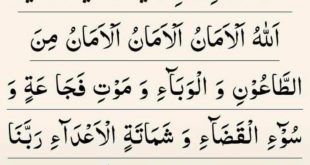 اَللّٰهُ اَلْاَمَانُ اَلْاَمَانُ اَلْاَمَانُ مِنَ
الطَّاعُوْنِ وَ الْوَبَآءِ وَ مَوْتِ فَجَاعَةٍ وَ
سُوْٓءِ الْقَضَآءِ وَ شَمَاتَةِ الْاَعْدَآءِ رَبَّنَا